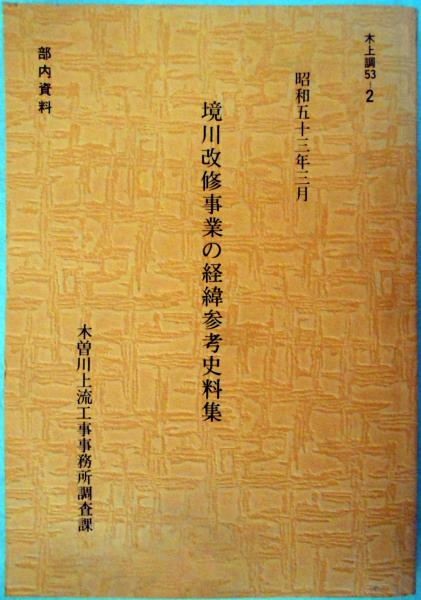 木上調53-2
昭和五十三年三月
境川改修事業の経緯参考史料集
木曽川上流工事事務所調査課
部内資料